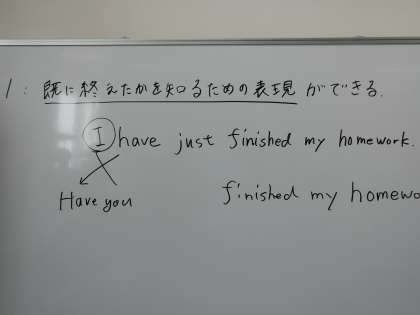 1: 既に終えたかを知るための表現ができる.
I have just finished my homework.
Have you finished my